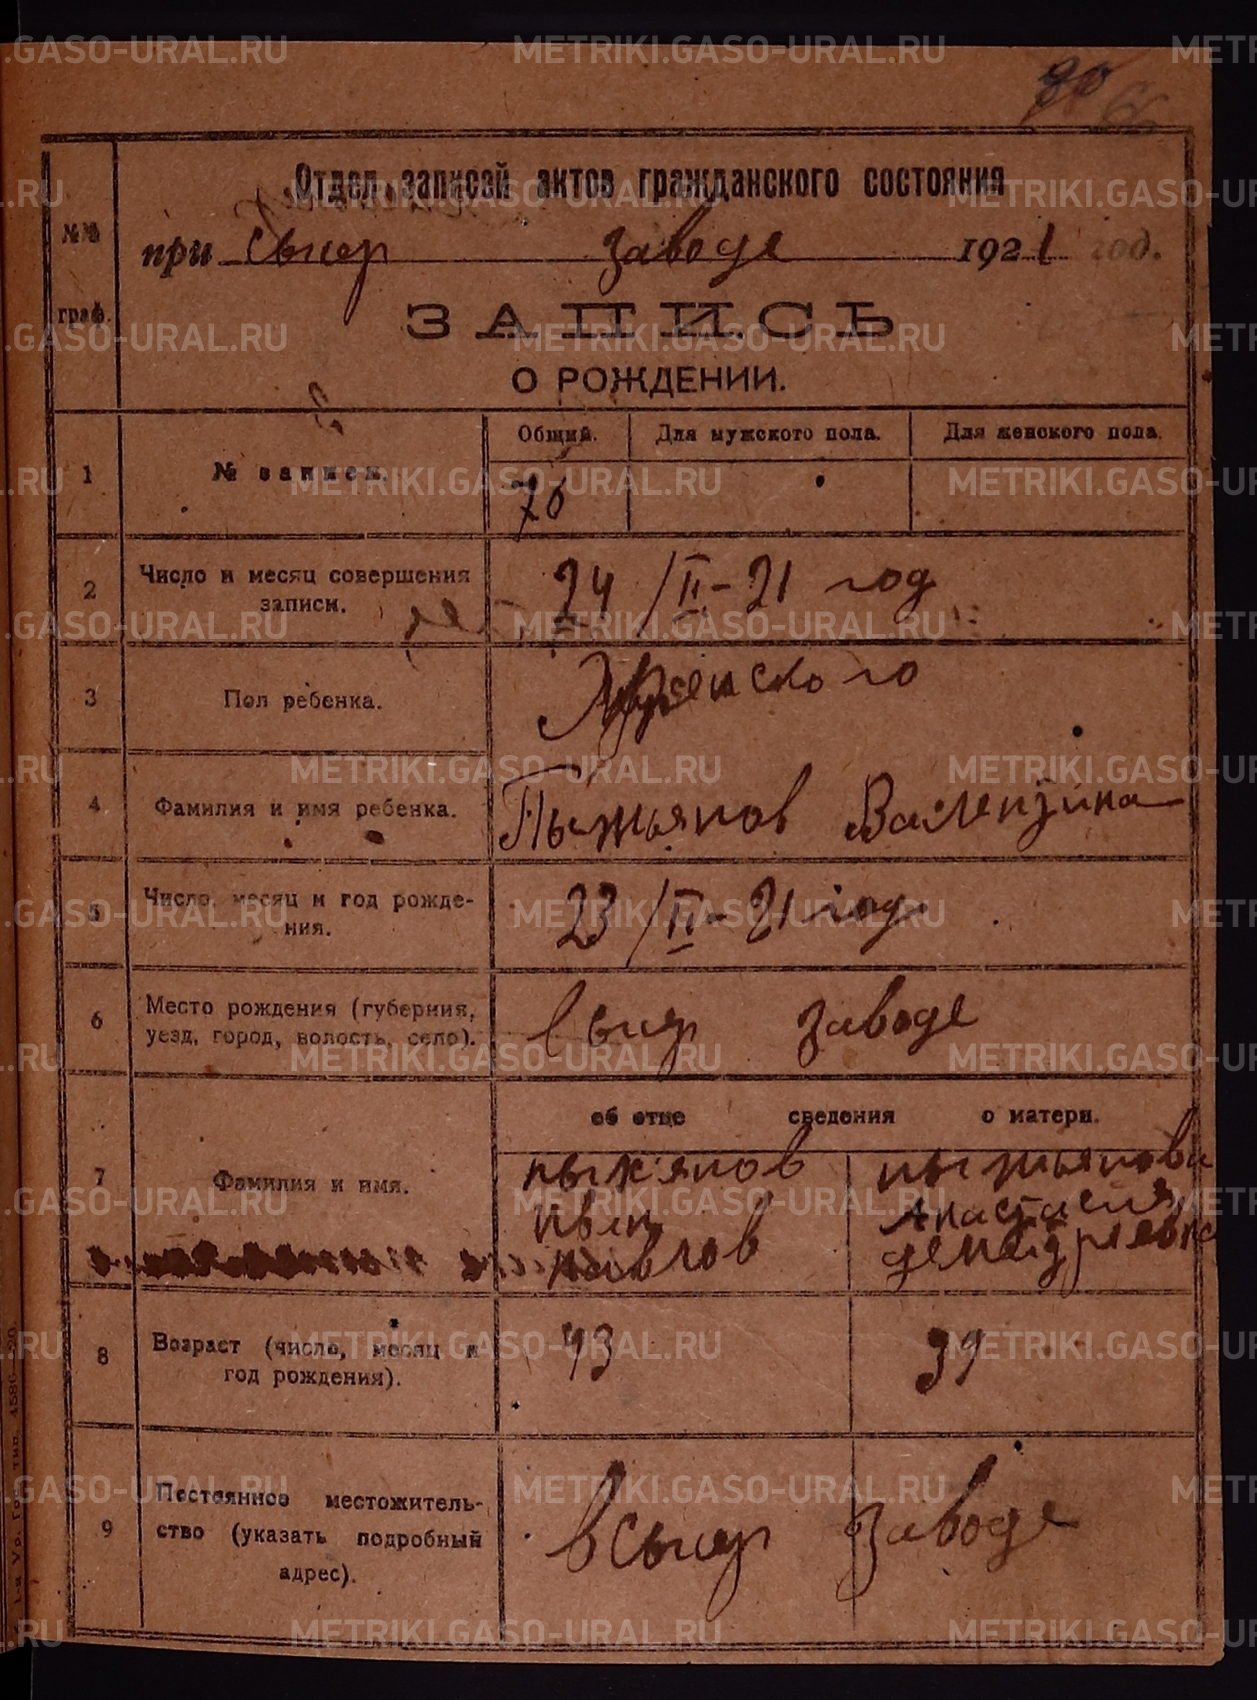 Отдел записей актов гражданского состояния
№№ граф.
при Сысер заводе 1921 год.
ЗАПИСЬ
О РОЖДЕНИИ.
1 № записи. Общий. Для мужского пола. Для женского пола.
76
2 Число и месяц совершения записи. 24/II-21 год
3 Пол ребенка. Женского
4 Фамилия и имя ребенка. Пыжьянов Валентина
5 Число, месяц и год рождения. 23/II-21 год
6 Место рождения (губерния, уезд, город, волость, село). В сысер заводе
об отце сведения о матери.
7 Фамилия и имя.
пыжянов
Иван
павлов
пыжьянова
Анастасия
8 Возраст (число, месяц и год рождения). 43 39
9 Постоянное местожительство (указать подробный адрес). В Сысер заводе
METRIKI.GASO-URAL.RU